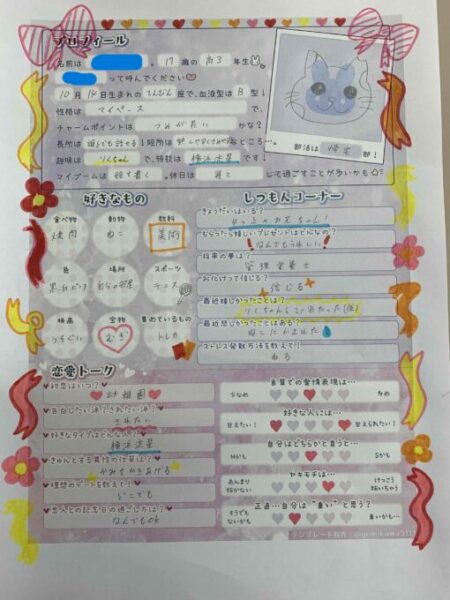 プロフィール
名前は 17歳の高3年生
って呼んでください♡
10月14日生まれのてんびん座で、血液型はB型!
性格はマイペースで、
チャームポイントはつめが長いかな?
長所は誰とでも話せる!短所は なところ…。
趣味はりくちゃんで、特技は横浜流星です!
マイブームは絵を書く。休日は寝て
じて過ごすことが多いかも
部活は帰宅部!
好きなもの
食べ物 動物 教科
焼肉 ねこ 美術
色 場所 スポーツ
黒白ピンク 自分の部屋 テニス
映画 宝物 集めているもの
むぎ トレカ
しつもんコーナー
きょうだいはいる?
もらったら嬉しいプレゼントはどんなの?
なんでもうれしい
将来の夢は?
管理栄養士
お化けって信じる?
信じる
最近嬉しかったことは?
りくちゃんに
最近悲しかったことはある?
ねこにかまれた
ストレス発散方法を教えて!
ねる
恋愛トーク
初恋はいつ?
幼稚園
告白したい派?されたい派?
されたい
好きなタイプはどんな人?
横浜流星
きゅんとする異性の仕草は?
かみをかきあげる
理想のデートを教えて!
どこでも
恋人との記念日の過ごし方は?
なんでもok
言葉での愛情表現は…
少なめ 多め
好きな人には…
甘えたい! 甘えられたい!
自分はどちらかと言うと…
Sかも Mかも
ヤキモチは…
あんまり妬かない けっこう妬いちゃう
正直…自分は"重い"と思う?
そうでもないかも 重いかも…